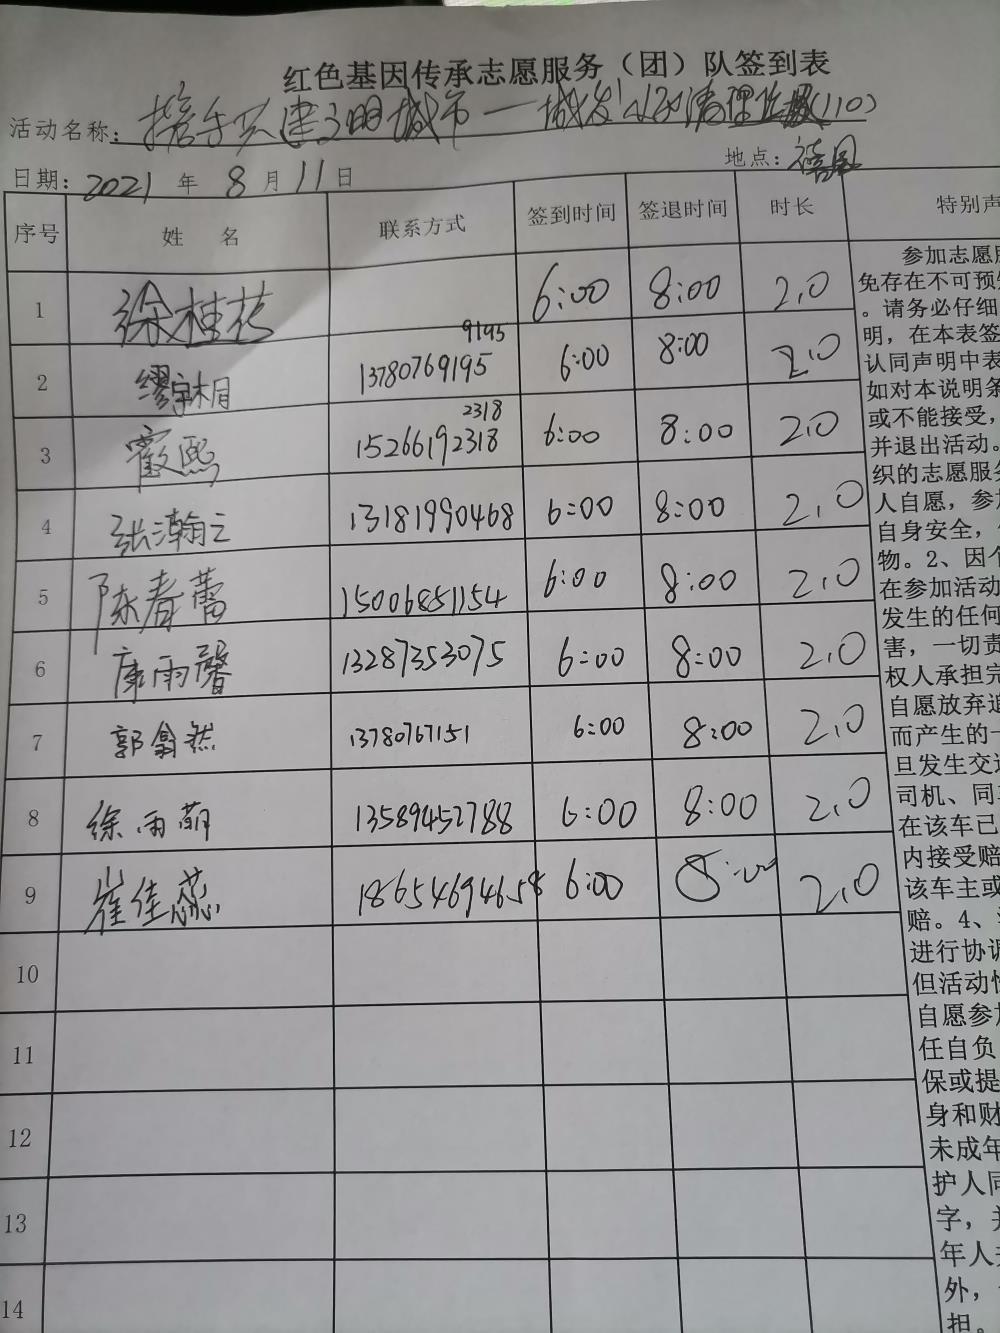 红色基因传承志愿服务（团）队签到表
活动名称：携手共建文明城市—城发 清理 (110)
地点：
日期：2021 年 8 月 11 日
序号 姓 名 联系方式 签到时间 签退时间 时长 特别声
1 徐桂花 6:00 8:00 2.0
9195
2 缪宇桐 13780769195 6:00 8:00 2.0
2318
3 熙 15266192318 6:00 8:00 2.0
4 张瀚之 13181990468 6:00 8:00 2.0
5 陈春蕾 15006851154 6:00 8:00 2.0
6 康雨馨 13287353075 6:00 8:00 2.0
7 郭翕然 13780767151 6:00 8:00 2.0
8 徐雨萌 13589452788 6:00 8:00 2.0
9 崔佳蕊 18654694658 6:00 8:00 2.0
10
11
12
13
14
参加志愿服
免存在不可预知
。请务必仔细
明，在本表签
认同声明中表
如对本说明条
或不能接受，
并退出活动。
织的志愿服务
人自愿，参加
自身安全，
物。2、因个
在参加活动
发生的任何
害，一切责
权人承担完
自愿放弃追
而产生的一
旦发生交通
司机、同车
在该车已
内接受赔
该车主或
赔。4、
进行协调
但活动性
自愿参加
任自负
保或提
身和财
未成年
护人同
字，并
年人
外，
担。